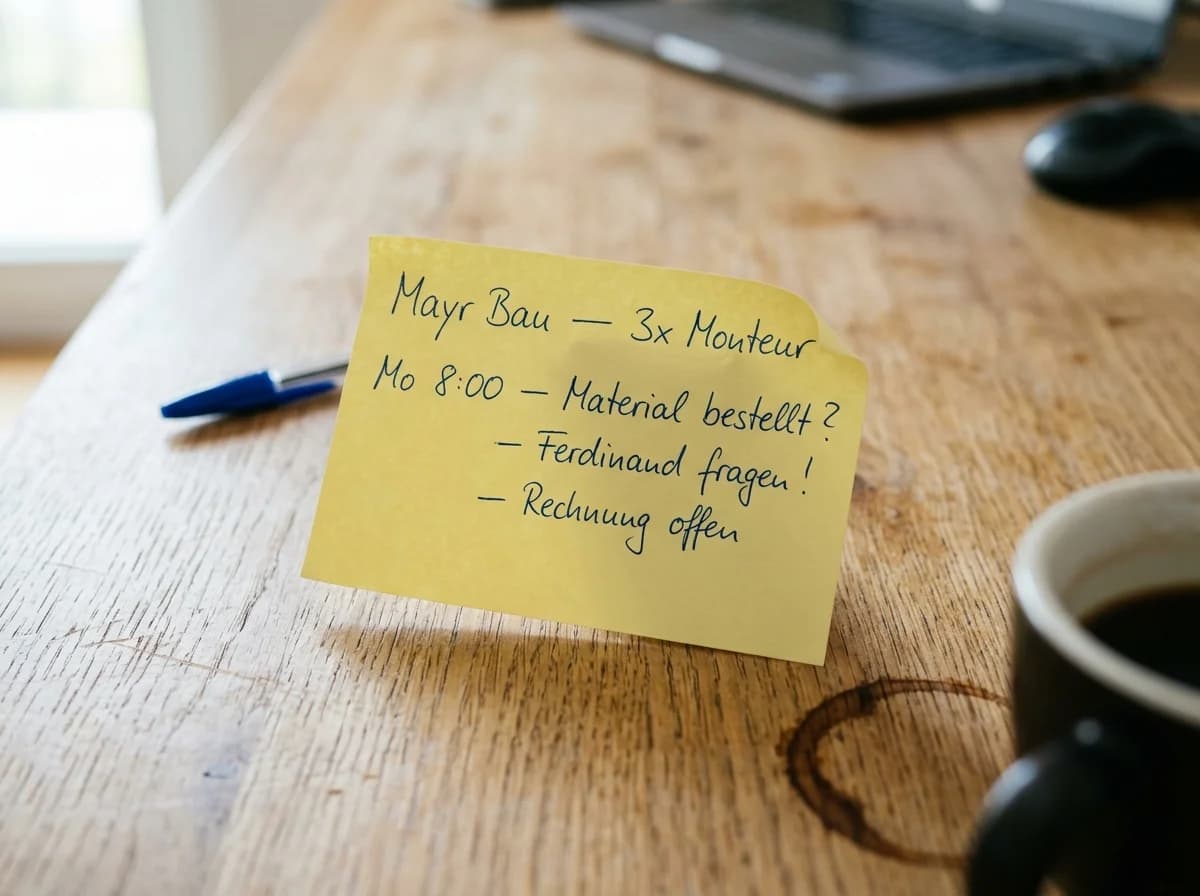 Mayr Bau — 3x Monteur
Mo 8:00 — Material bestellt?
— Ferdinand fragen!
— Rechnung offen